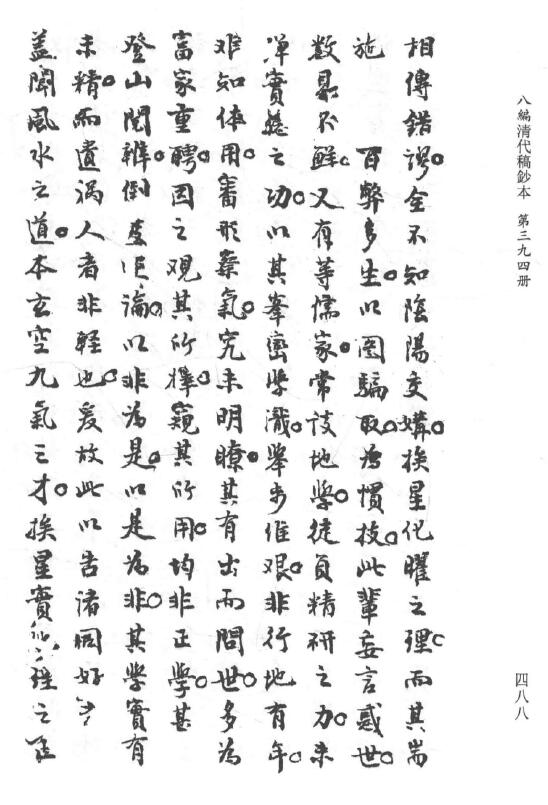 八編清代稿鈔本　第三九四册
四八八
相傳錯謬。全不知陰陽交媾。挨星化曜之理。而其耑
施　百弊多生。以圖騙取為慣技。此輩妄言惑世。
數最不鮮。又有等儒家。常談地學。徒負精研之力。未
嘩實懸之功。以其峯巒學識。舉步維艱。非行地有年。
难知体用。審形察氣。究未明瞭。其有出而問世。多為
富家重聘。因之觀其所擇。窺其所用。均非正學。甚
登山閱辨。倒 論。以非為是。以是為非。其學實有
未精。而遺禍人者非輕也。爰故此以告諸同好
盖聞風水之道。本玄空九氣三才。挨星實 理之